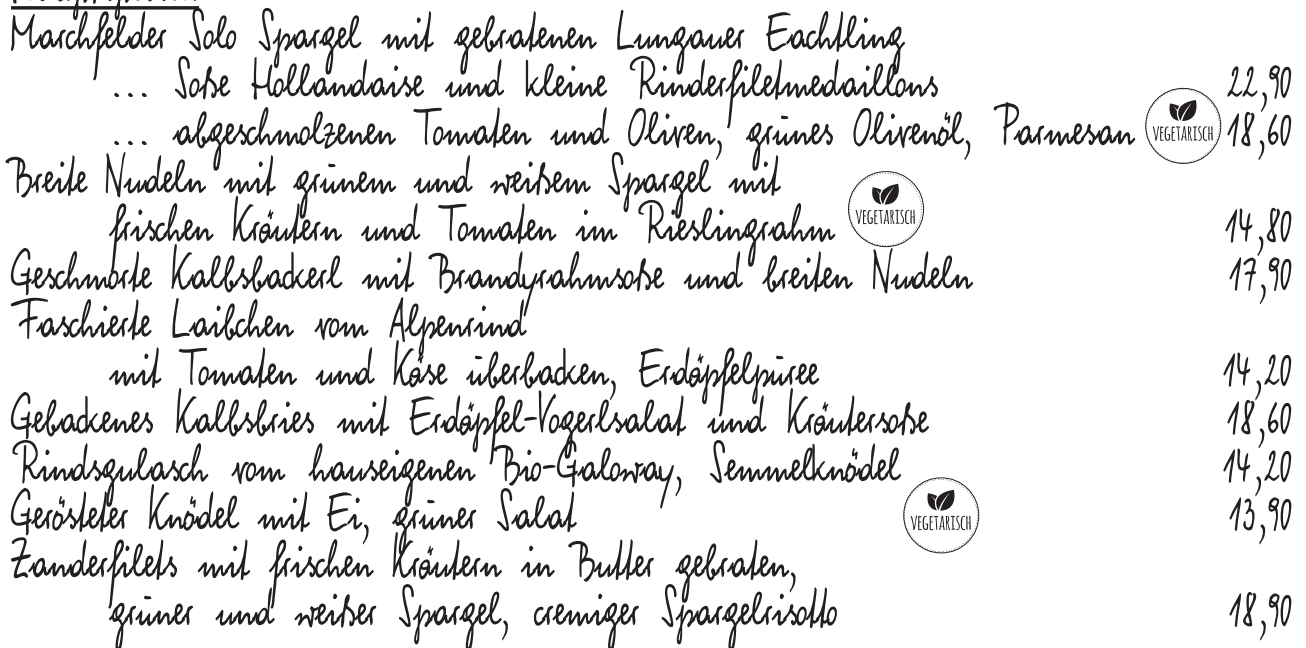 Marchfelder Solo Spargel mit gebratenen Lungauer Eachtling
... Soße Hollandaise und kleine Rinderfiletmedaillons 22,90
... abgeschmolzenen Tomaten und Oliven, grünes Olivenöl, Parmesan VEGETARISCH 18,60
Breite Nudeln mit grünem und weißem Spargel mit
frischen Kräutern und Tomaten im Rieslingrahm VEGETARISCH 14,80
Geschmorte Kalbsbackerl mit Brandyrahmsoße und breiten Nudeln 17,90
Faschierte Laibchen vom Alpenrind
mit Tomaten und Käse überbacken, Erdäpfelpüree 14,20
Gebackenes Kalbsbries mit Erdäpfel-Vogerlsalat und Kräutersoße 18,60
Rindsgulasch vom hauseigenen Bio-Galoway, Semmelknödel 14,20
Gerösteter Knödel mit Ei, grüner Salat VEGETARISCH 13,90
Zanderfilets mit frischen Kräutern in Butter gebraten,
grüner und weißer Spargel, cremiger Spargelrisotto 18,90